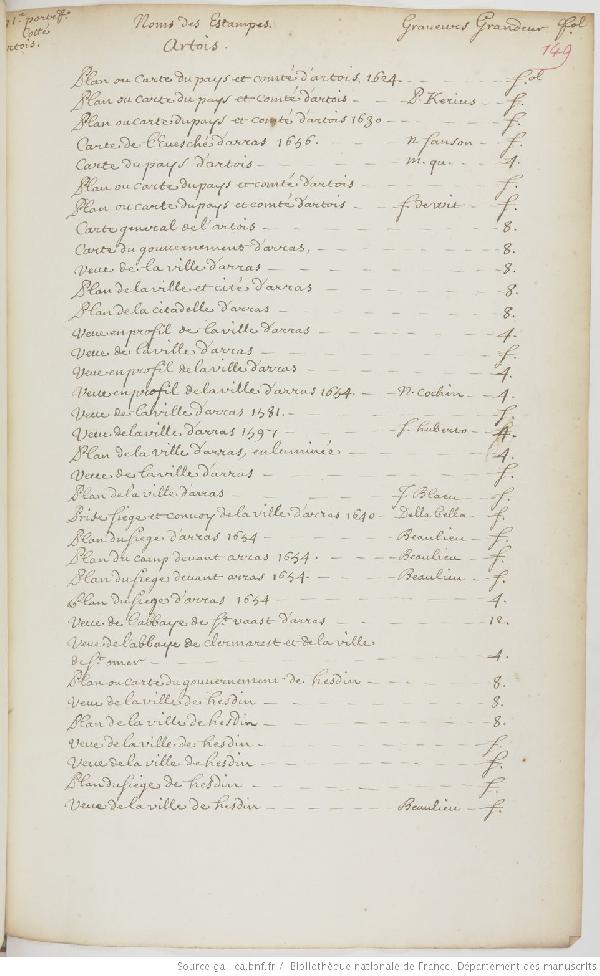 Noms des Estampes. Graveurs Grandeur fol
149
cotté
artois.
Artois.
Plan ou Carte du pays et comté d'artois, 1624 - f.ol
Plan ou carte du pays et Comté d'artois - P. Kerius - f.
Plan ou carte du pays et comté d'artois 1630 - f.
Carte de l'Evesché d'arras 1656. - n. sanson - f.
Carte du pays d'artois - m. qu. - 4.
Plan ou carte du pays et comté d'artois - f.
Plan ou carte du pays et comté d'artois - f. de wit - f.
Carte general de l'artois - 8.
Carte du gouvernement d'arras, - 8.
Veue de la ville d'arras - 8.
Plan de la ville et cité d'arras - 8.
Plan de la citadelle d'arras - 8.
Veue en profil de la ville d'arras - 4.
Veue de la ville d'arras - f.
Veue en profil de la ville d'arras - 4.
Veue en profil de la ville d'arras 1654. - N. Cochin - 4.
Veue de la ville d'arras 1581. - f.
Veue de la ville d'arras 1597 - f. huberto - 4.
Plan de la ville d'arras, enluminée - 4.
Veue de la ville d'arras - f.
Plan de la ville d'arras - J. Blaeu - f.
Prise siege et convoy de la ville d'arras 1640 - Della bella - f.
Plan du siege d'arras 1654 - Beaulieu - f.
Plan du camp devant arras 1654. - Beaulieu - f.
Plan du siege devant arras 1654. - Beaulieu - f.
Plan du siege d'arras 1654 - 4.
Veue de l'abbaye de St. vaast d'arras - 12.
Veue de l'abbaye de clermarest et de la ville
de St. omer - 4.
Plan ou carte du gouvernement de hesdin - 8.
Veue de la ville de hesdin - 8.
Plan de la ville de hesdin - 8.
Veue de la ville de hesdin - f.
Veue de la ville de hesdin - f.
Plan du siege de hesdin - f.
Veue de la ville de hesdin - Beaulieu - f.
Source gallica.bnf.fr / Bibliothèque nationale de France. Département des manuscrits